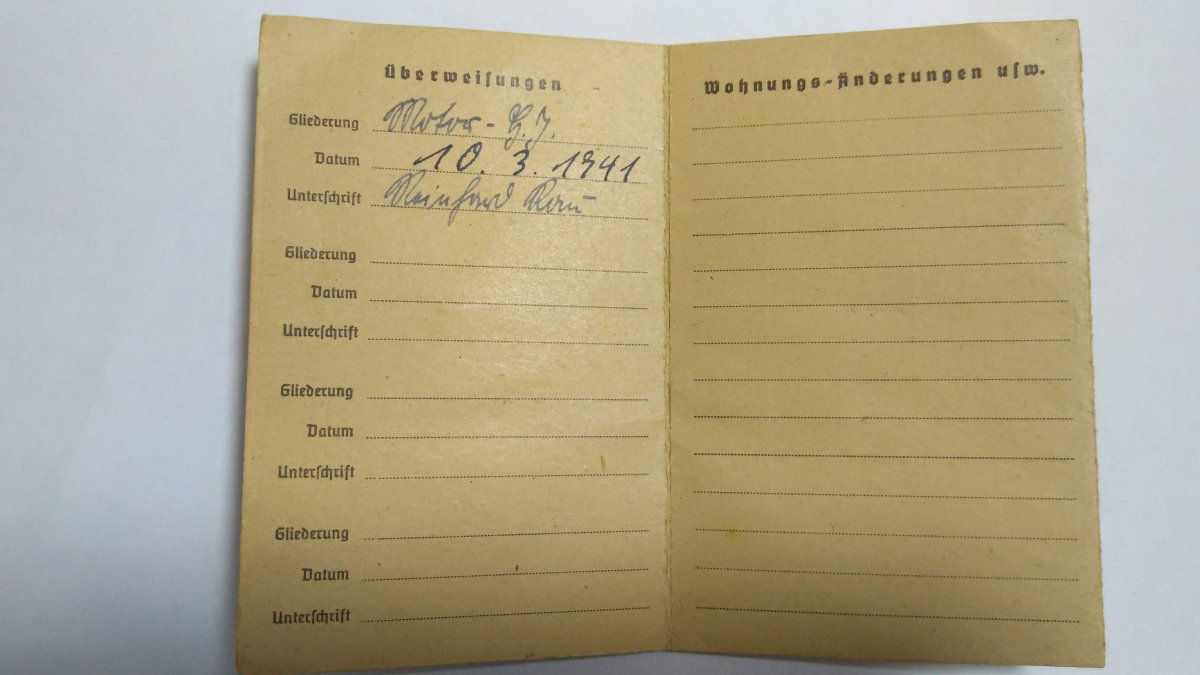 Überweisungen
Gliederung Motor-H.J.
Datum 10. 3. 1941
Unterschrift Reinhard Rau
Gliederung
Datum
Unterschrift
Gliederung
Datum
Unterschrift
Gliederung
Datum
Unterschrift
Wohnungs-Änderungen usw.